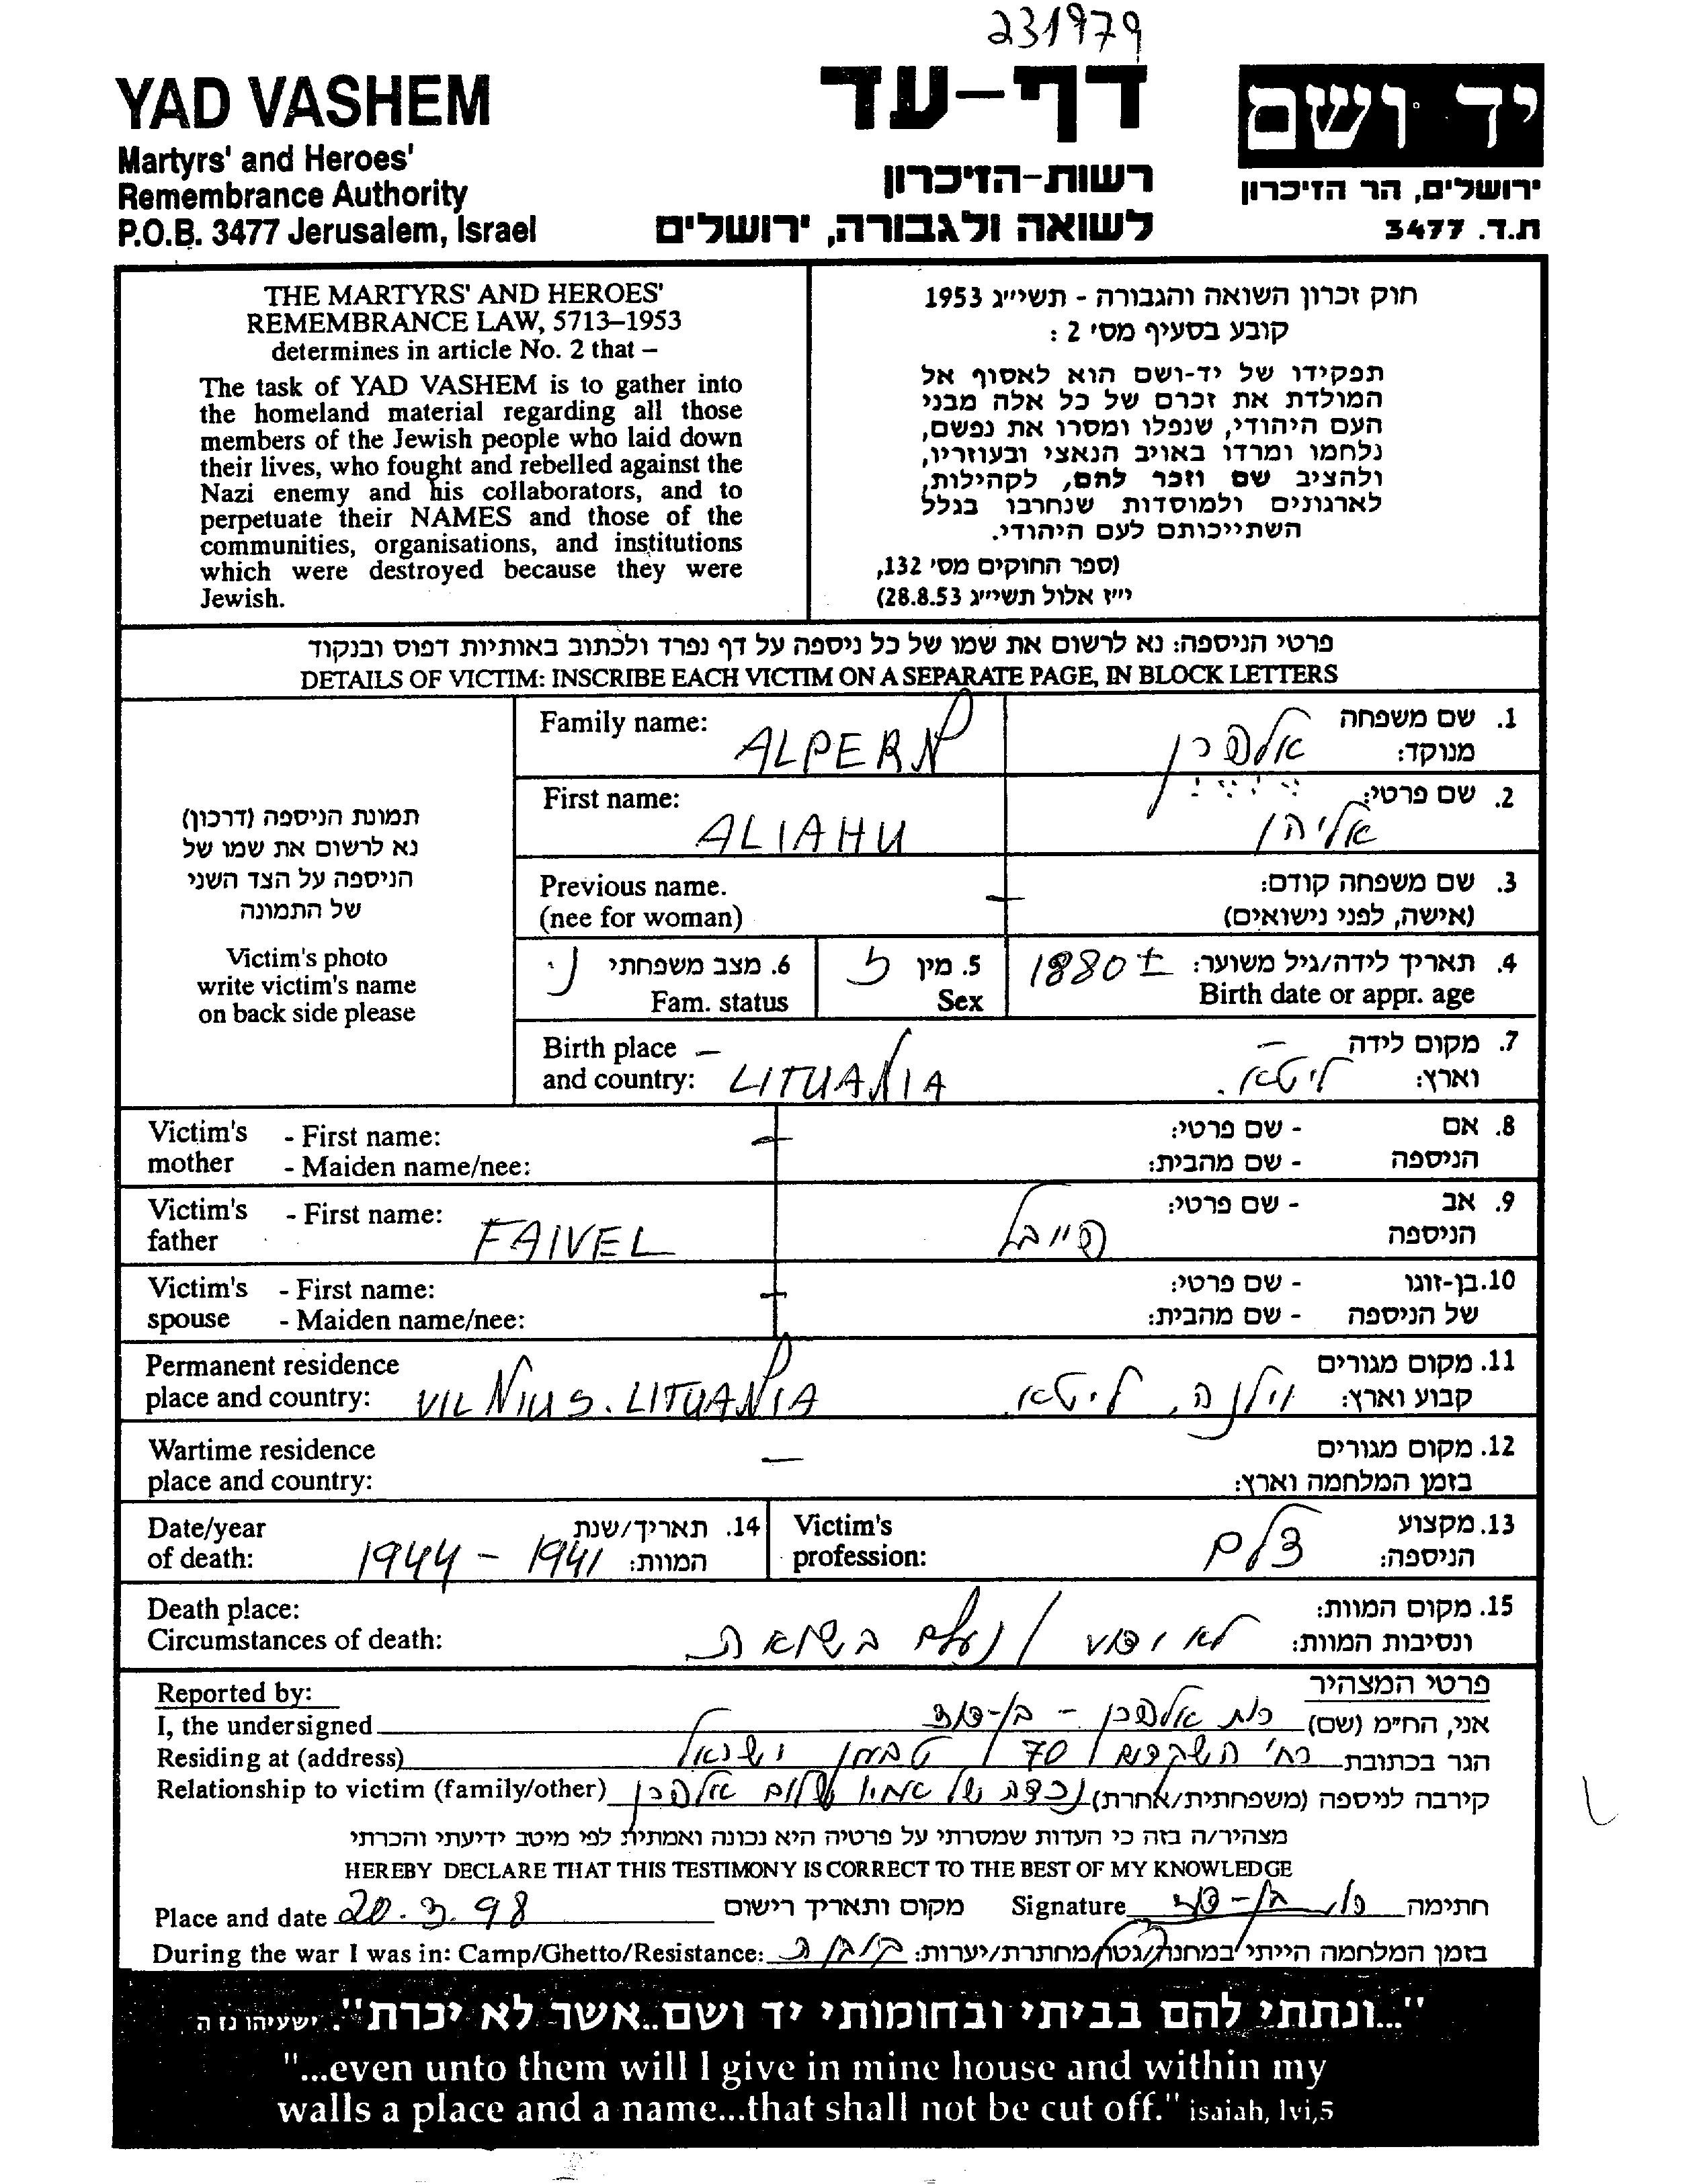 231979
YAD VASHEM
Martyrs' and Heroes'
Remembrance Authority
P.O.B. 3477 Jerusalem, Israel
דף-עד
רשות-הזיכרון
לשואה ולגבורה, ירושלים
יד ושם
ירושלים, הר הזיכרון
ת.ד. 3477
THE MARTYRS' AND HEROES'
REMEMBRANCE LAW, 5713–1953
determines in article No. 2 that –
The task of YAD VASHEM is to gather into
the homeland material regarding all those
members of the Jewish people who laid down
their lives, who fought and rebelled against the
Nazi enemy and his collaborators, and to
perpetuate their NAMES and those of the
communities, organisations, and institutions
which were destroyed because they were
Jewish.
חוק זכרון השואה והגבורה - תשי״ג 1953
קובע בסעיף מס׳ 2 :
תפקידו של יד-ושם הוא לאסוף אל
המולדת את זכרם של כל אלה מבני
העם היהודי, שנפלו ומסרו את נפשם,
נלחמו ומרדו באויב הנאצי ובעוזריו,
ולהציב שם וזכר להם, לקהילות,
לארגונים ולמוסדות שנחרבו בגלל
השתייכותם לעם היהודי.
(ספר החוקים מס׳ 132,
י״ז אלול תשי״ג 28.8.53)
פרטי הניספה: נא לרשום את שמו של כל ניספה על דף נפרד ולכתוב באותיות דפוס ובנקוד
DETAILS OF VICTIM: INSCRIBE EACH VICTIM ON A SEPARATE PAGE, IN BLOCK LETTERS
תמונת הניספה (דרכון)
נא לרשום את שמו של
הניספה על הצד השני
של התמונה
Victim's photo
write victim's name
on back side please
Family name: ALPERN
1. שם משפחה
מנוקד: אלפרן
First name: ALIAHU
2. שם פרטי: אליהו
Previous name.
(nee for woman)
3. שם משפחה קודם:
(אישה, לפני נישואים)
4. תאריך לידה/גיל משוער: 1880 ±
Birth date or appr. age
5. מין ז
Sex
6. מצב משפחתי נ.
Fam. status
Birth place –
and country: LITUANIA
7. מקום לידה –
וארץ: ליטא.
Victim's - First name:
mother - Maiden name/nee:
8. אם - שם פרטי:
הניספה - שם מהבית:
Victim's - First name:
father FAIVEL
9. אב - שם פרטי:
הניספה פייבל
Victim's - First name:
spouse - Maiden name/nee:
10. בן-זוגו - שם פרטי:
של הניספה - שם מהבית:
Permanent residence
place and country: VILNIUS. LITUANIA
11. מקום מגורים
קבוע וארץ: וילנה, ליטא.
Wartime residence
place and country: –
12. מקום מגורים
בזמן המלחמה וארץ:
Date/year
of death:
14. תאריך/שנת
המוות: 1941 - 1944
Victim's
profession:
13. מקצוע
הניספה: צלם
Death place:
Circumstances of death:
15. מקום המוות:
ונסיבות המוות: לא ידוע / נעלם בשואה
Reported by:
פרטי המצהיר
I, the undersigned
אני, הח״מ (שם) רות אלפרן - בן-
Residing at (address)
הגר בכתובת רח׳ השקדים 70 טבעון ישראל
Relationship to victim (family/other)
קירבה לניספה (משפחתית/אחרת) נכדה של אחיו שלום אלפרן
מצהיר/ה בזה כי העדות שמסרתי על פרטיה היא נכונה ואמתית לפי מיטב ידיעתי והכרתי
HEREBY DECLARE THAT THIS TESTIMONY IS CORRECT TO THE BEST OF MY KNOWLEDGE
Place and date 20.3.98 מקום ותאריך רישום Signature חתימה
During the war I was in: Camp/Ghetto/Resistance: בזמן המלחמה הייתי במחנה/גטו/מחתרת/יערות:
"...ונתתי להם בביתי ובחומותי יד ושם..אשר לא יכרת". ישעיהו נו ה
"...even unto them will I give in mine house and within my
walls a place and a name...that shall not be cut off." isaiah, lvi,5